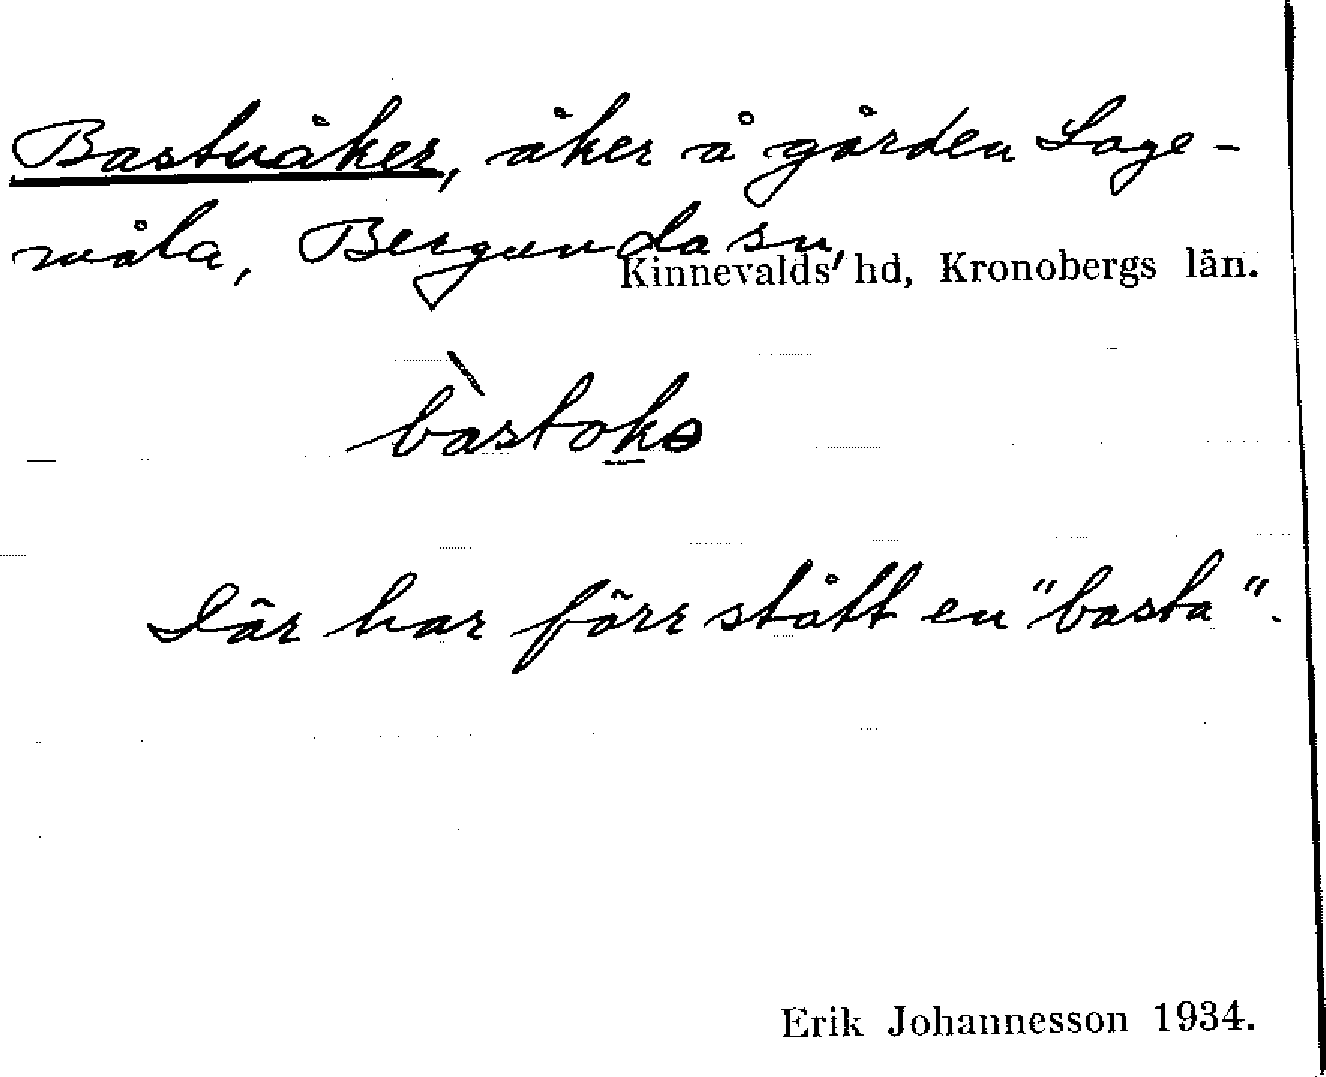 Bastuåker, åker å gården Lage-
måla, Bergunda sn,
Kinnevalds hd, Kronobergs län.
bàstokə
Där har förr stått en "basta".
Erik Johannesson 1934.